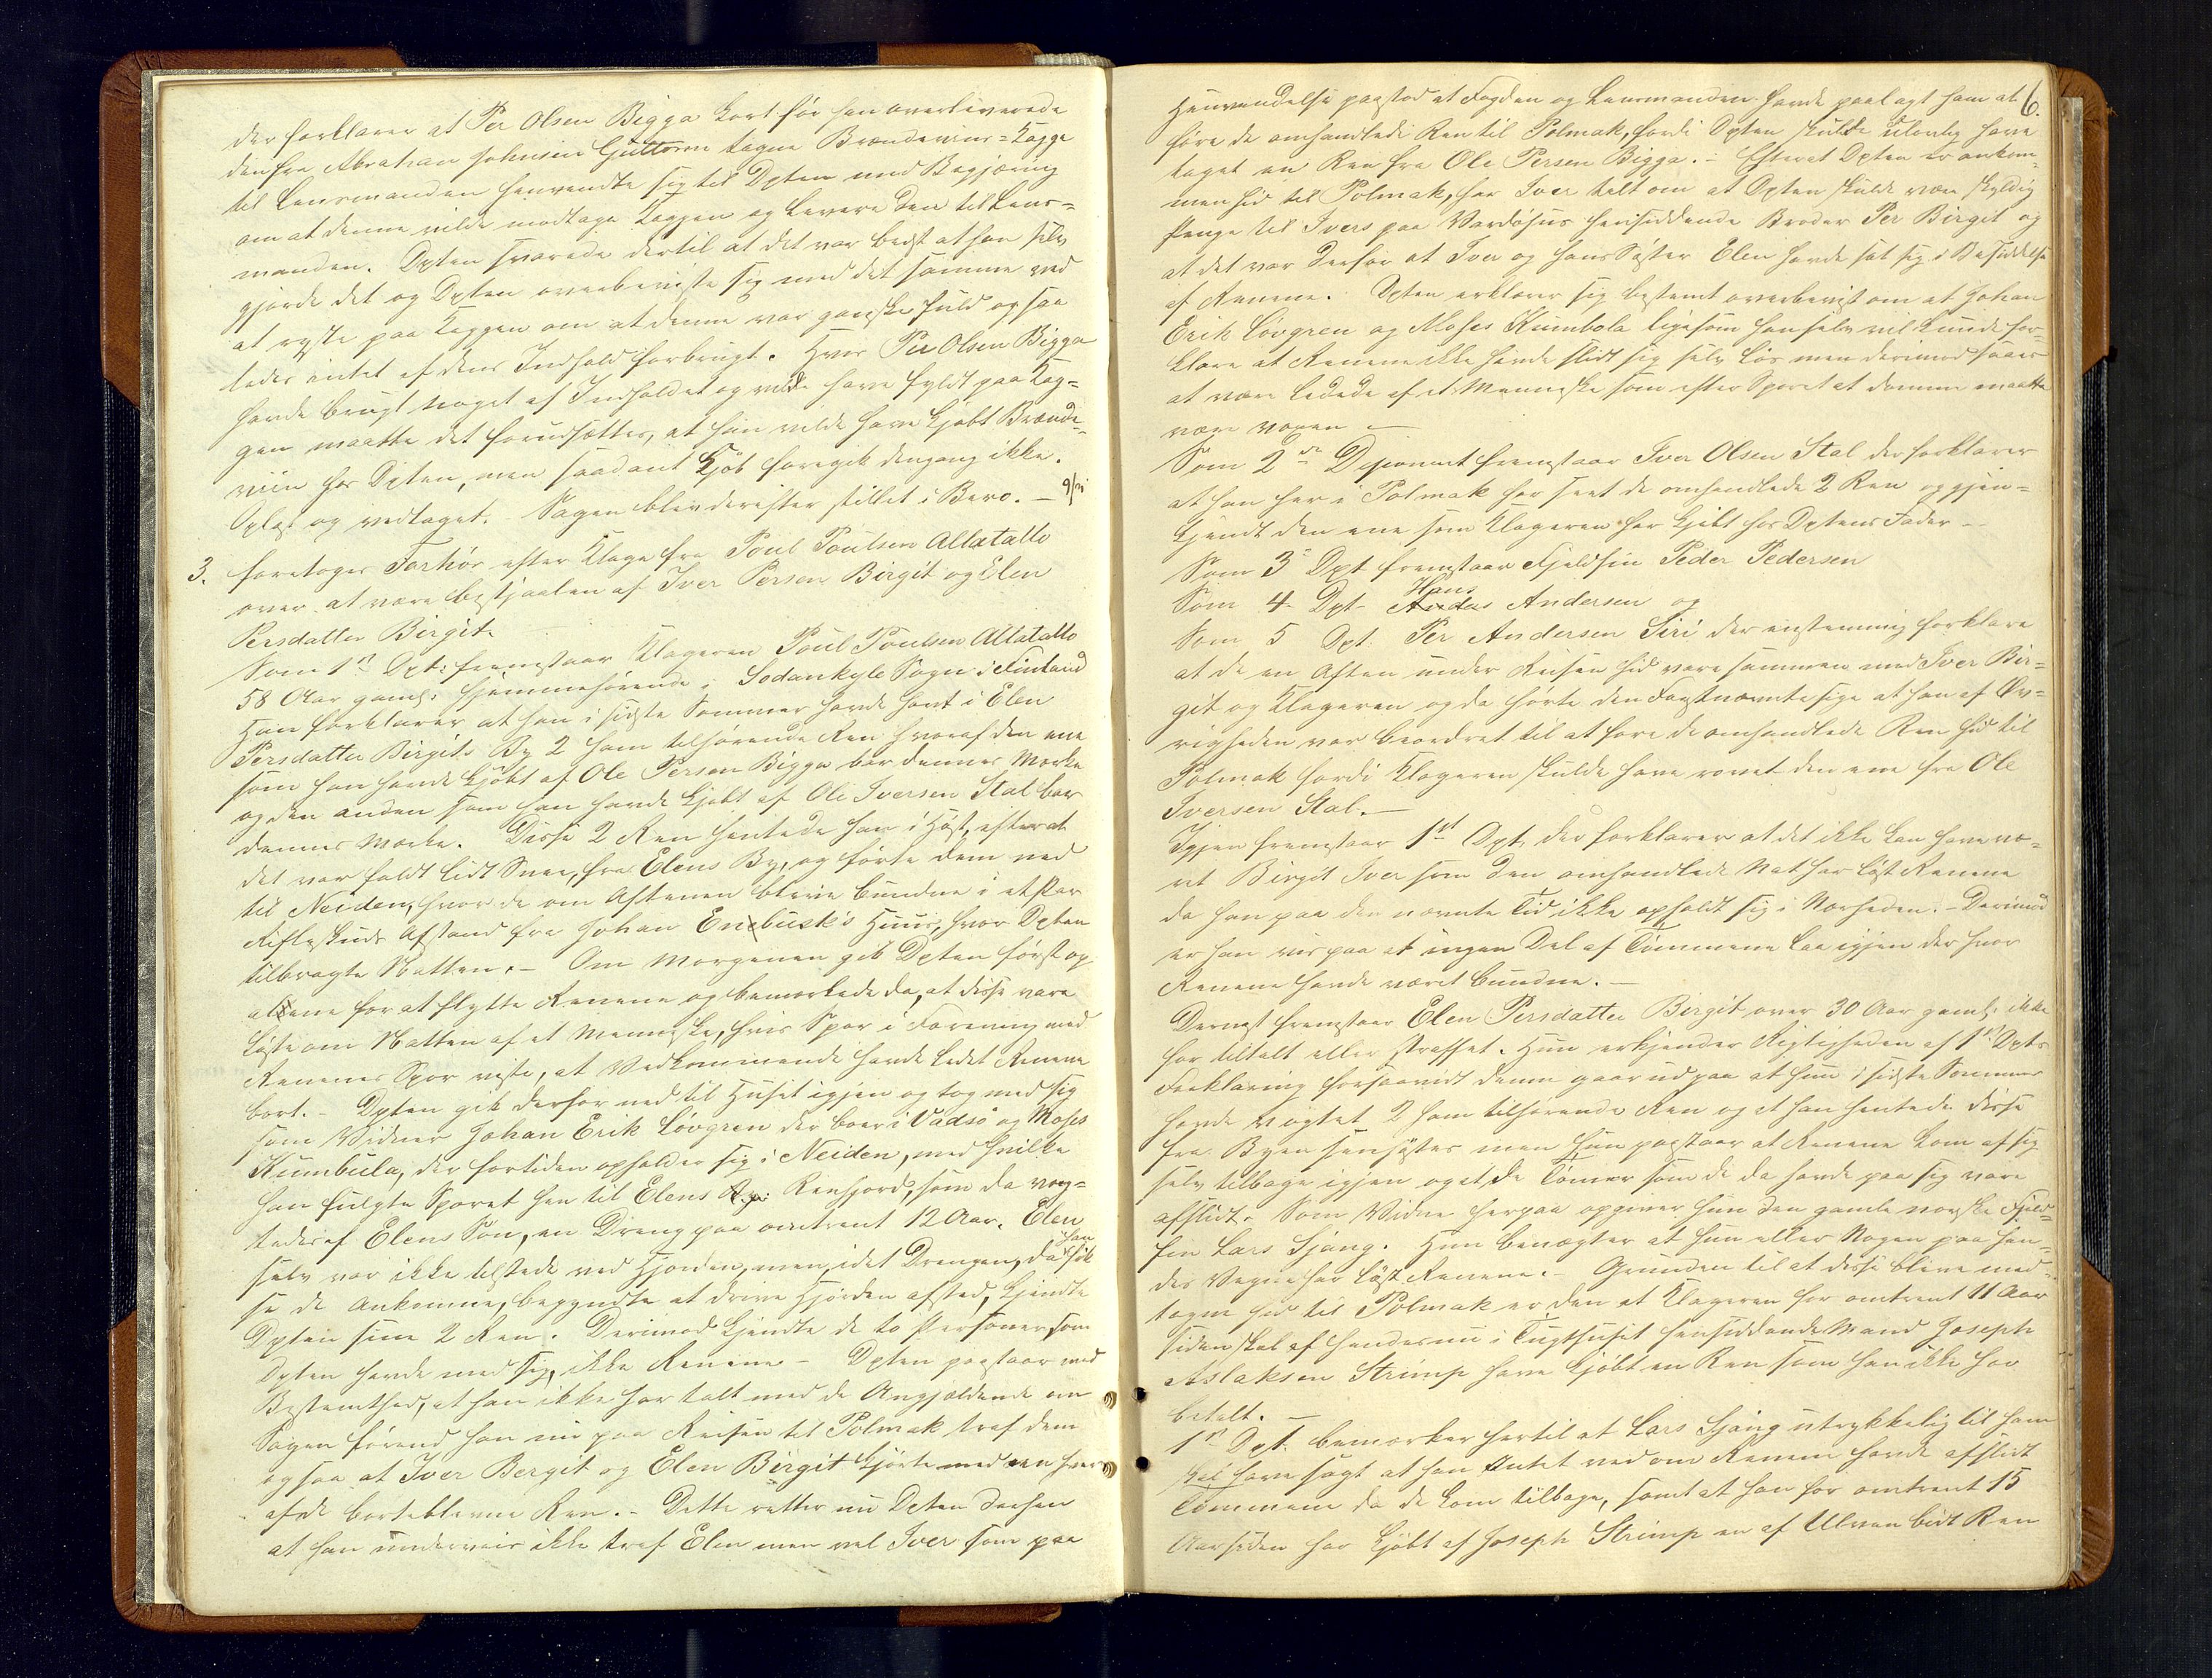 der forklarer at Per Olsen Bigga kort før han overleverede
den fra Abraham Johnsen Guttorm tagne Brændeviins-Kagge
til Lensmanden henvendte sig til Dpten med Begjæring
om at denne vilde modtage Kaggen og levere den til Lens-
manden. Dpten svarede dertil at det var bedst at han selv
gjorde det og Dpten overbeviste sig med det samme ved
at ryste paa Kaggen om at denne var ganske fuld og saa-
ledes intet af dens Indhold forbrugt. Hvis Per Olsen Bigga
havde brugt noget af Indholdet og vilde have fyldt paa Kag-
gen maatte det forudsættes, at han vilde have kjøbt Brænde-
viin hos Dpten, men saadant Kjøb foregik dengang ikke.
Oplæst og vedtaget. Sagen blev derefter stillet i Bero. –
3. foretoges Forhør efter Klage fra Poul Poulsen Allatallo
over at være bestjaalen af Iver Persen Birgit og Elen
Persdatter Birgit.
Som 1ste Dpt: fremstaar Klageren Poul Poulsen Allatallo
58 Aar gaml: hjemmehørende i Sodankyle Sogn i Finland
Han forklarer at han i sidste Sommer havde havt i Elen
Persdatter Birgits By 2 ham tilhørende Ren hvoraf den ene
som han havde kjøbt af Ole Persen Bigga bar dennes Mærke
og den anden som han havde kjøbt af Ole Iversen Stal bar
dennes Mærke. Disse 2 Ren hentede han i Høst, efterat
det var faldt lidt Snee, fra Elens By, og førte dem ned
til Neiden, hvor de om Aftenen bleve bundne i et Par
Rifleskuds Afstand fra Johan Enbusk's Huus, hvor Dpten
tilbragte Natten. – Om Morgenen gik Dpten først op
alene for at flytte Renene og bemærkede da, at disse vare
løste om Natten af et Menneske, hvis Spor i Forening med
Renenes Spor viste, at Vedkommende havde ledet Renene
bort. – Dpten gik derfor ned til Huset igjen og tog med sig
som Vidner Johan Erik Løvgren der boer i Vadsø og Moses
Kumbula, der fortiden opholder sig i Neiden, med hvilke
han fulgte Sporet hen til Elens Renhjord, som da vog-
tedes af Elens Søn, en Dreng paa omtrent 12 Aar. Elen
selv var ikke tilstede ved Hjorden, men idet Drengen, da han fik
se de Ankomne, begyndte at drive Hjorden afsted, kjendte
Dpten sine 2 Ren. Derimod kjendte de to Personer, som
Dpten havde med sig, ikke Renene – Dpten paastaar med
Bestemthed, at han ikke har talt med de Angjældende om
Sagen førend han nu paa Reisen til Polmak traf dem
og saa at Iver Bergit og Elen Birgit kjørte med en hver
af de bortblevne Ren. – Dette retter nu Dpten derhen
at han underveis ikke traf Elen men vel Iver som paa
6.
Henvendelse paastod at Fogden og Lensmanden havde paalagt ham at
føre de omhandlede Ren til Polmak, fordi Dpten skulde ulovlig have
taget en Ren fra Ole Persen Bigga. – Efterat Dpten er ankom-
men hid til Polmak, har Iver talt om at Dpten skulde være skyldig
Penge til Ivers paa Vardøhus hensiddende Broder Per Birgit og
at det var derfor at Iver og hans Søster Elen havde sat sig i Besiddelse
af Renene. Dpten erklærer sig bestemt overbevist om at Johan
Erik Løvgren og Moses Kumbola ligesom han selv vil kunde for-
klare at Renene ikke havde slidt sig selv løs men derimod
at være ledede af et Menneske som efter Sporet at dømme maatte
være voxen –
Som 2den Deponent fremstaar Iver Olsen Stal der forklarer
at han her i Polmak har seet de omhandlede 2 Ren og gjen-
kjendt den ene som Klageren har kjøbt hos Dptens Fader –
Som 3e Dpt fremstaar Fjeldfin Peder Pedersen
Som 4 Dpt- Hans Andersen og
Som 5 Dpt. Per Andersen Siri der enstemmig forklare
at de en Aften under Reisen hid vare sammen med Iver Bir-
git og Klageren og da hørte den Førstnævnte sige at han af Øv-
righeden var beordret til at føre de omhandlede Ren hid til
Polmak fordi Klageren skulde have røvet den ene fra Ole
Iversen Stal. –
Igjen fremstaar 1st Dpt, der forklarer at det ikke kan have væ-
ret Birgit Iver som den omhandlede Nat har løst Renene
da han paa den nævnte Tid ikke opholdt sig i Nærheden. – Derimod
er han vis paa at ingen Del af Tømmene laa igjen der hvor
Renene havde været bundne. –
Dernæst fremstaar Elen Persdatter Birgit over 30 Aar gaml: ikke
før tiltalt eller straffet. Hun erkjender Rigtigheden af 1st Dpts
Forklaring forsaavidt denne gaar ud paa at hun i sidste Sommer
havde vogtet 2 ham tilhørende Ren og at han hentede disse
fra Byen senhøstes men hun paastaar at Renene kom af sig
selv tilbage igjen og at de Tømer som de da havde paa sig vare
afslidt. Som Vidne herpaa opgiver hun den gamle norske Fjeld-
fin Lars Sjang. Hun benægter at hun eller Nogen paa hen-
des Vegne har løst Renene. – Grunden til at disse bleve med-
tagne hid til Polmak er den at Klageren for omtrent 11 Aar
siden skal af hendes nu i Tugthuset hensiddende Mand Joseph
Aslaksen Strimp have kjøbt en Ren som han ikke har
betalt. –
1st Dpt. bemærker hertil at Lars Sjang udtrykkelig til ham
skal have sagt at han Intet ved om Renene havde afslidt
Tømmene da de kom tilbage, samt at han for omtrent 15
Aar siden har kjøbt af Joseph Strimp en af Ulven bidt Ren